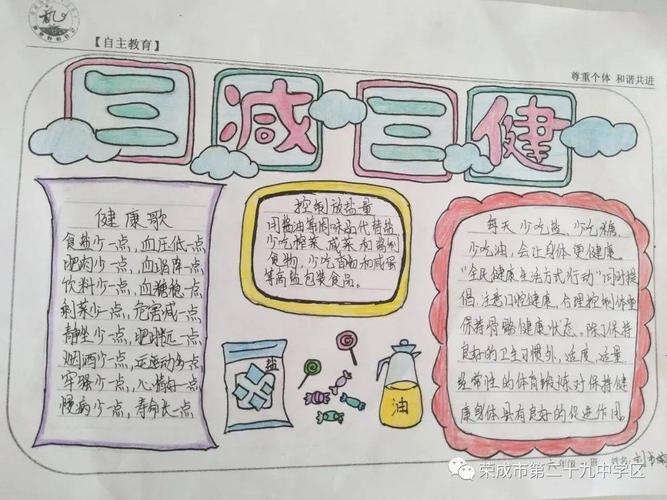 【自主教育】
尊重个体 和谐共进
三减三健
健康歌
食盐少一点,血压低一点
肥肉少一点,血脂降一点
饮料少一点,血糖稳一点
剩菜少一点,危害减一点
静坐少一点,肥胖远一点
烟酒少一点,运动多一点
牢骚少一点,心情好一点
慢病少一点,寿命长一点
控制放盐量
用酱油等调味品代替盐
少吃榨菜、咸菜和酱制
食物,少吃香肠和咸蛋
等高盐包装食品。
盐
油
每天少吃盐、少吃糖、
少吃油,会让身体更健康。
"全民健康生活方式行动"同时提
倡,注意口腔健康,合理控制体重
保持骨骼健康状态。除了保持
良好的卫生习惯外,适度、适量
经常性的体育锻炼对保持健
康身体具有良好的促进作用。
六年级 班 姓名:
荣成市第二十九中学区